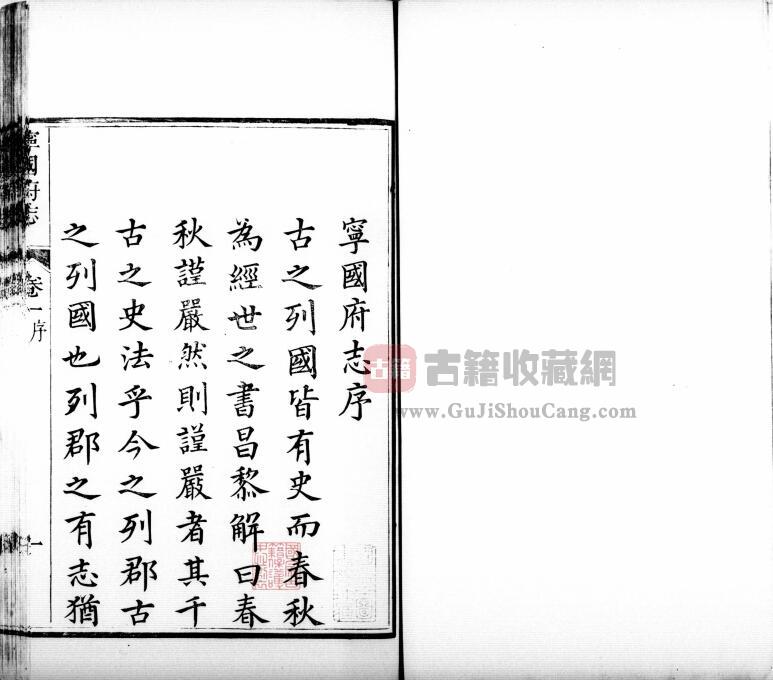 寧國府志序
古之列國皆有史而春秋
為經世之書昌黎解曰春
秋謹嚴然則謹嚴者其千
古之史法乎今之列郡古
之列國也列郡之有志猶
寧國府志
卷一序
一
古籍
古籍收藏網
www.GuJiShouCang.com